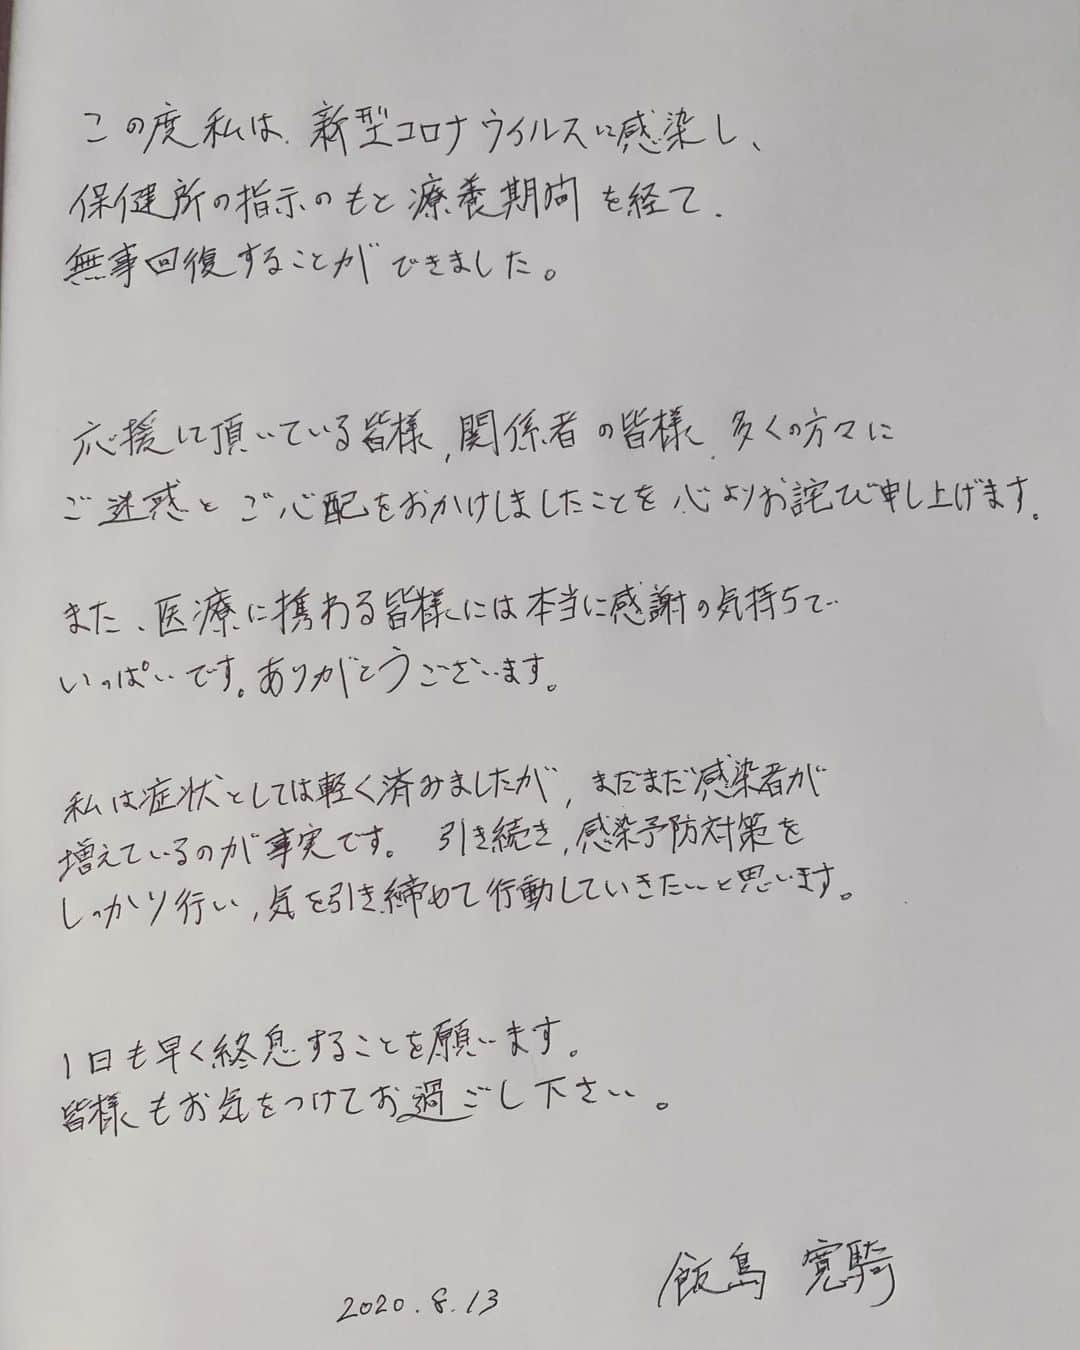 この度私は、新型コロナウイルスに感染し、
保健所の指示のもと療養期間を経て、
無事回復することができました。
応援して頂いている皆様、関係者の皆様、多くの方々に
ご迷惑とご心配をおかけしましたことを心よりお詫び申し上げます。
また、医療に携わる皆様には本当に感謝の気持ちで
いっぱいです。ありがとうございます。
私は症状としては軽く済みましたが、まだまだ感染者が
増えているのが事実です。 引き続き、感染予防対策を
しっかり行い、気を引き締めて行動していきたいと思います。
1日も早く終息することを願います。
皆様もお気をつけてお過ごし下さい。
飯島 寛騎
2020.8.13